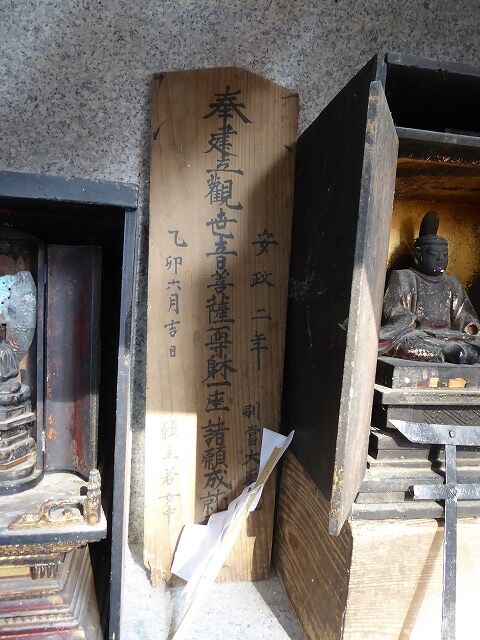 安政二年
別當大
奉建立觀世音菩薩一尊躰一座諸願成就
乙卯六月吉日
願主若女中